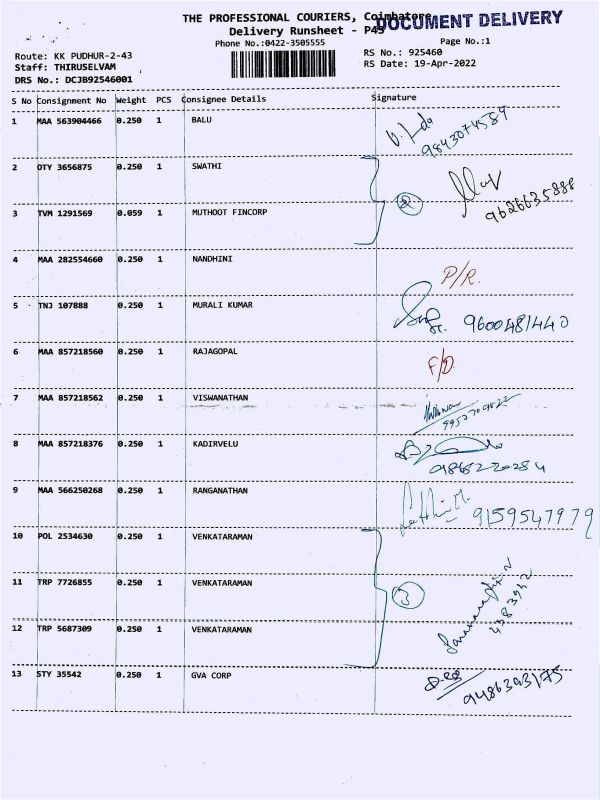 THE PROFESSIONAL COURIERS, Coimbatore
DOCUMENT DELIVERY
Delivery Runsheet - P45
Phone No.:0422-3505555
Page No.:1
Route: KK PUDHUR-2-43
RS No.: 925460
Staff: THIRUSELVAM
RS Date: 19-Apr-2022
DRS No.: DCJB92546001
S No Consignment No Weight PCS Consignee Details Signature
1 MAA 563904466 0.250 1 BALU
9843074589
2 OTY 3656875 0.250 1 SWATHI
2
9626635888
3 TVM 1291569 0.059 1 MUTHOOT FINCORP
4 MAA 282554660 0.250 1 NANDHINI
P/R.
5 TNJ 107888 0.250 1 MURALI KUMAR
9600481440
6 MAA 857218560 0.250 1 RAJAGOPAL
F/D
7 MAA 857218562 0.250 1 VISWANATHAN
8 MAA 857218376 0.250 1 KADIRVELU
9 MAA 566250268 0.250 1 RANGANATHAN
9159547979
10 POL 2534630 0.250 1 VENKATARAMAN
11 TRP 7726855 0.250 1 VENKATARAMAN
3
4383942
12 TRP 5687309 0.250 1 VENKATARAMAN
13 STY 35542 0.250 1 GVA CORP
9486393175